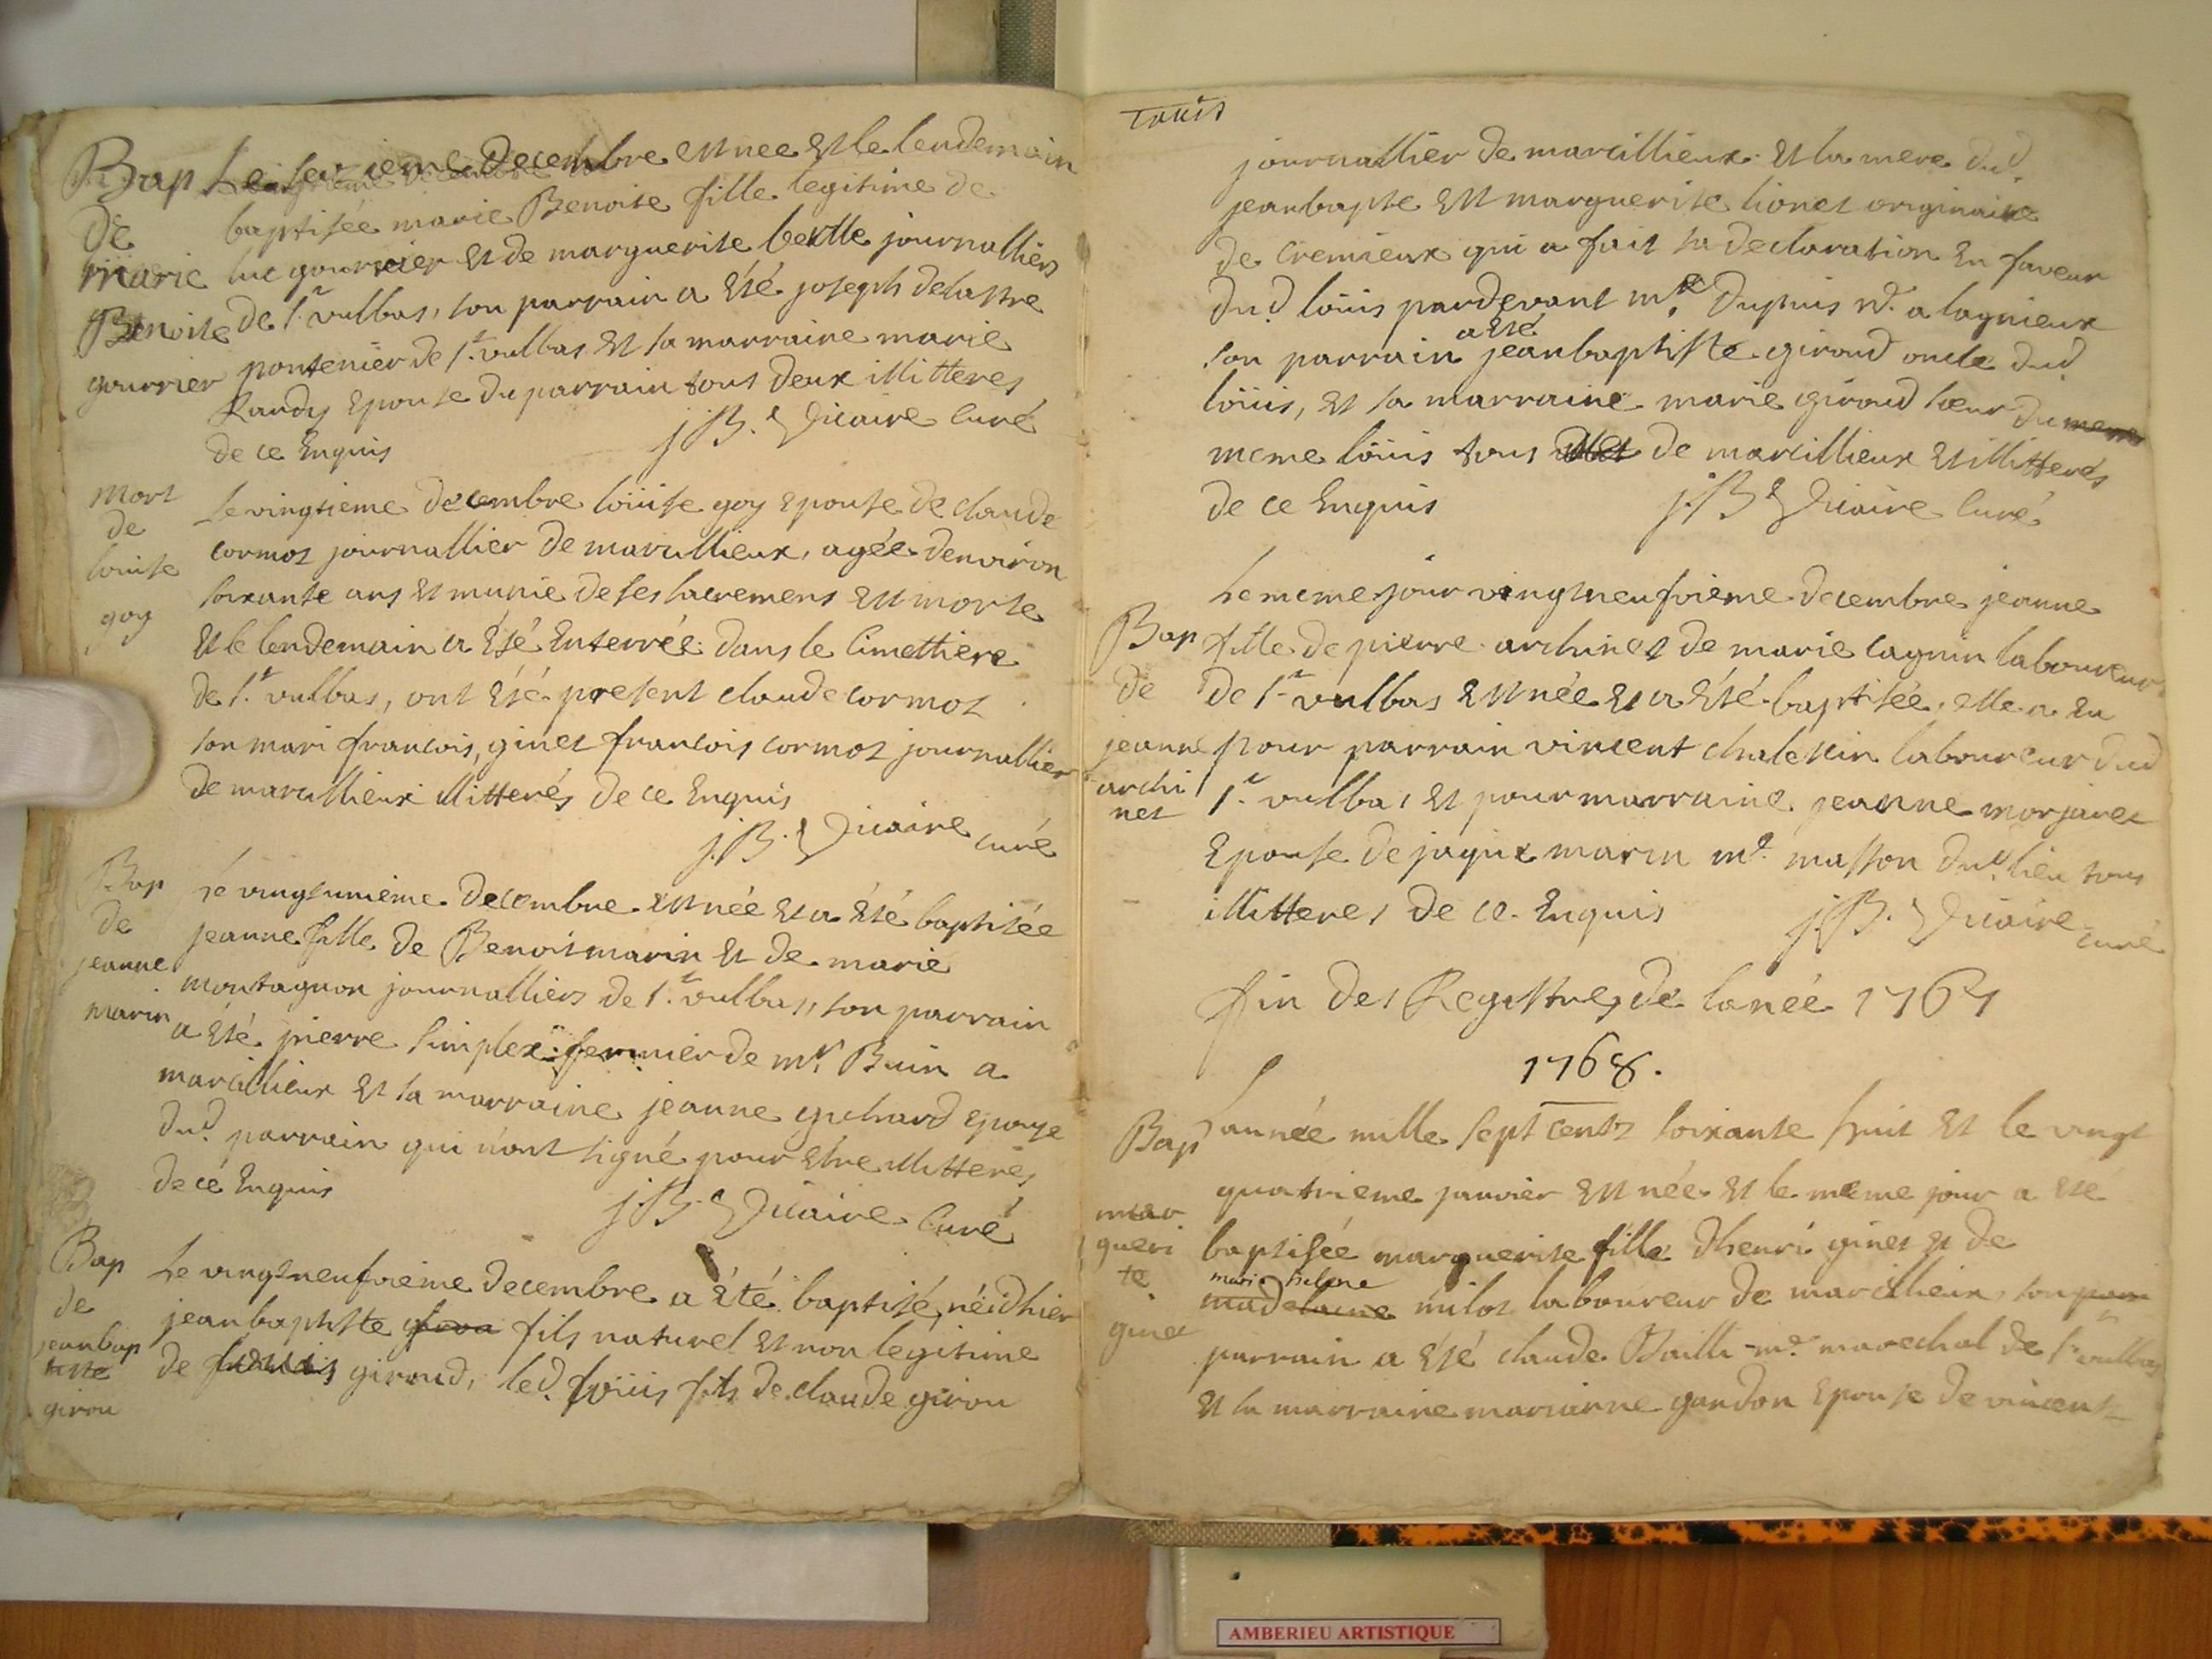 Bap Le seizieme Decembre est nee et le lendemain
De baptisée marie Benoite fille legitime de
marie luc gourrier et de marguerite bertle journalliers
Benoite de St. vulbas, son parrain a été joseph delastre
gourrier pontenier de St. vulbas et sa marraine marie
Randy Epouse du parrain tous deux illitteres
de ce Enquis j.B. Vicaire Curé
mort
de
louise
goy
Le vingtieme decembre loüise goy epouse de claude
cormoz journallier de marcillieux, agée denviron
soixante ans et munie de ses sacremens est morte
et le lendemain a été Enterrée dans le Cimettiere
de St. vulbas, ont été present claude cormoz
son mari francois, ginet francois cormoz journallier
de marcillieux illitterés de ce Enquis
j.B. Vicaire curé
Bap
de
jeanne
marin
Le vingtunieme decembre est née et a été baptisée
jeanne fille de Benoit marin et de marie
montagnon journalliers de St. vulbas, son parrain
a été pierre simplex fermier de mr. Buin a
marcillieux et sa marraine jeanne guchard epouse
dud. parrain qui n'ont signé pour etre illitterés
de cé Enquis j.B. Vicaire Curé
Bap
de
jeanbap
tiste
girou
Le vingtneufvieme decembre a été baptisé, né d'hier
jeanbaptiste fils naturel et non legitime
de giroud, led. loüis fils de claude girou
Louis
journallier de marcillieux et la mere dud.
jeanbapte est marguerite lionet originaire
de cremieux qui a fait sa declaration en faveur
dud. loüis pardevant me. Dupuis nd. a lagnieux
a été
son parrain jeanbaptiste giroud oncle dud
loüis, et sa marraine marie giroud sœur du meme
meme loüis tous de marcillieux et illitterés
de ce Enquis j.B. Vicaire Curé
Le meme jour vingtneufvieme decembre jeanne
Bap
de
jeanne
archi
net
fille de pierre archinet de marie cagnin laboureur
de St. vulbas est née et a été baptisée, elle a eu
pour parrain vincent chaletin laboureur dud
St. vulbas et pour marraine jeanne morjaret
Epouse de jaque marin me. masson dud. lieu tous
illitteres de ce Enquis j.B. Vicaire curé
fin des Registres de lanée 1767
1768.
Bap
mar
gueri
te
ginet
L'année mille sept cents soixante huit et le vingt
quatrieme janvier est née et le meme jour a été
baptisée marguerite fille d'henri ginet et de
marie helene
madelaine milot laboureur de marcillieux, son parr
parrain a été claude Bailli me. marechal de St. vulbas
et sa marraine marianne gandon Epouse de vincent
AMBERIEU ARTISTIQUE